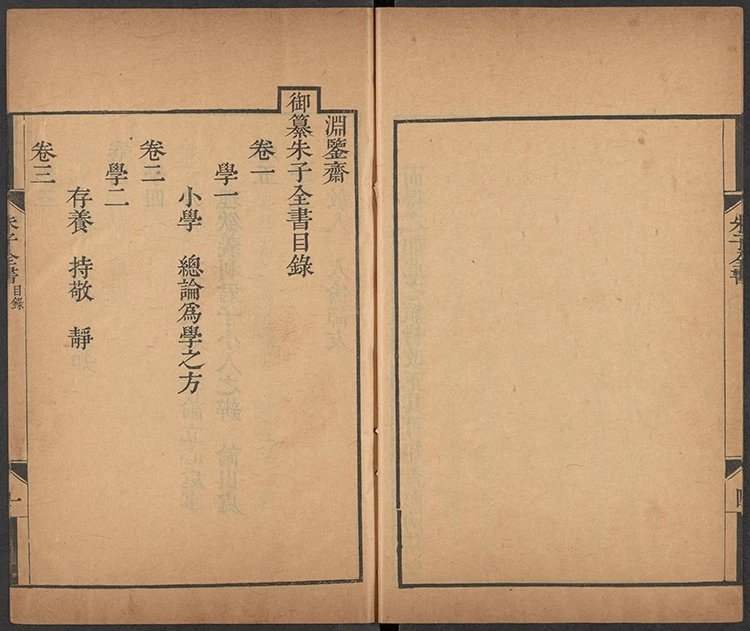 朱子全書
淵鑒齋
御纂朱子全書目錄
卷一
學一
小學　總論為學之方
卷二
學二
存養　持敬　靜
卷三
朱子全書
目錄
一